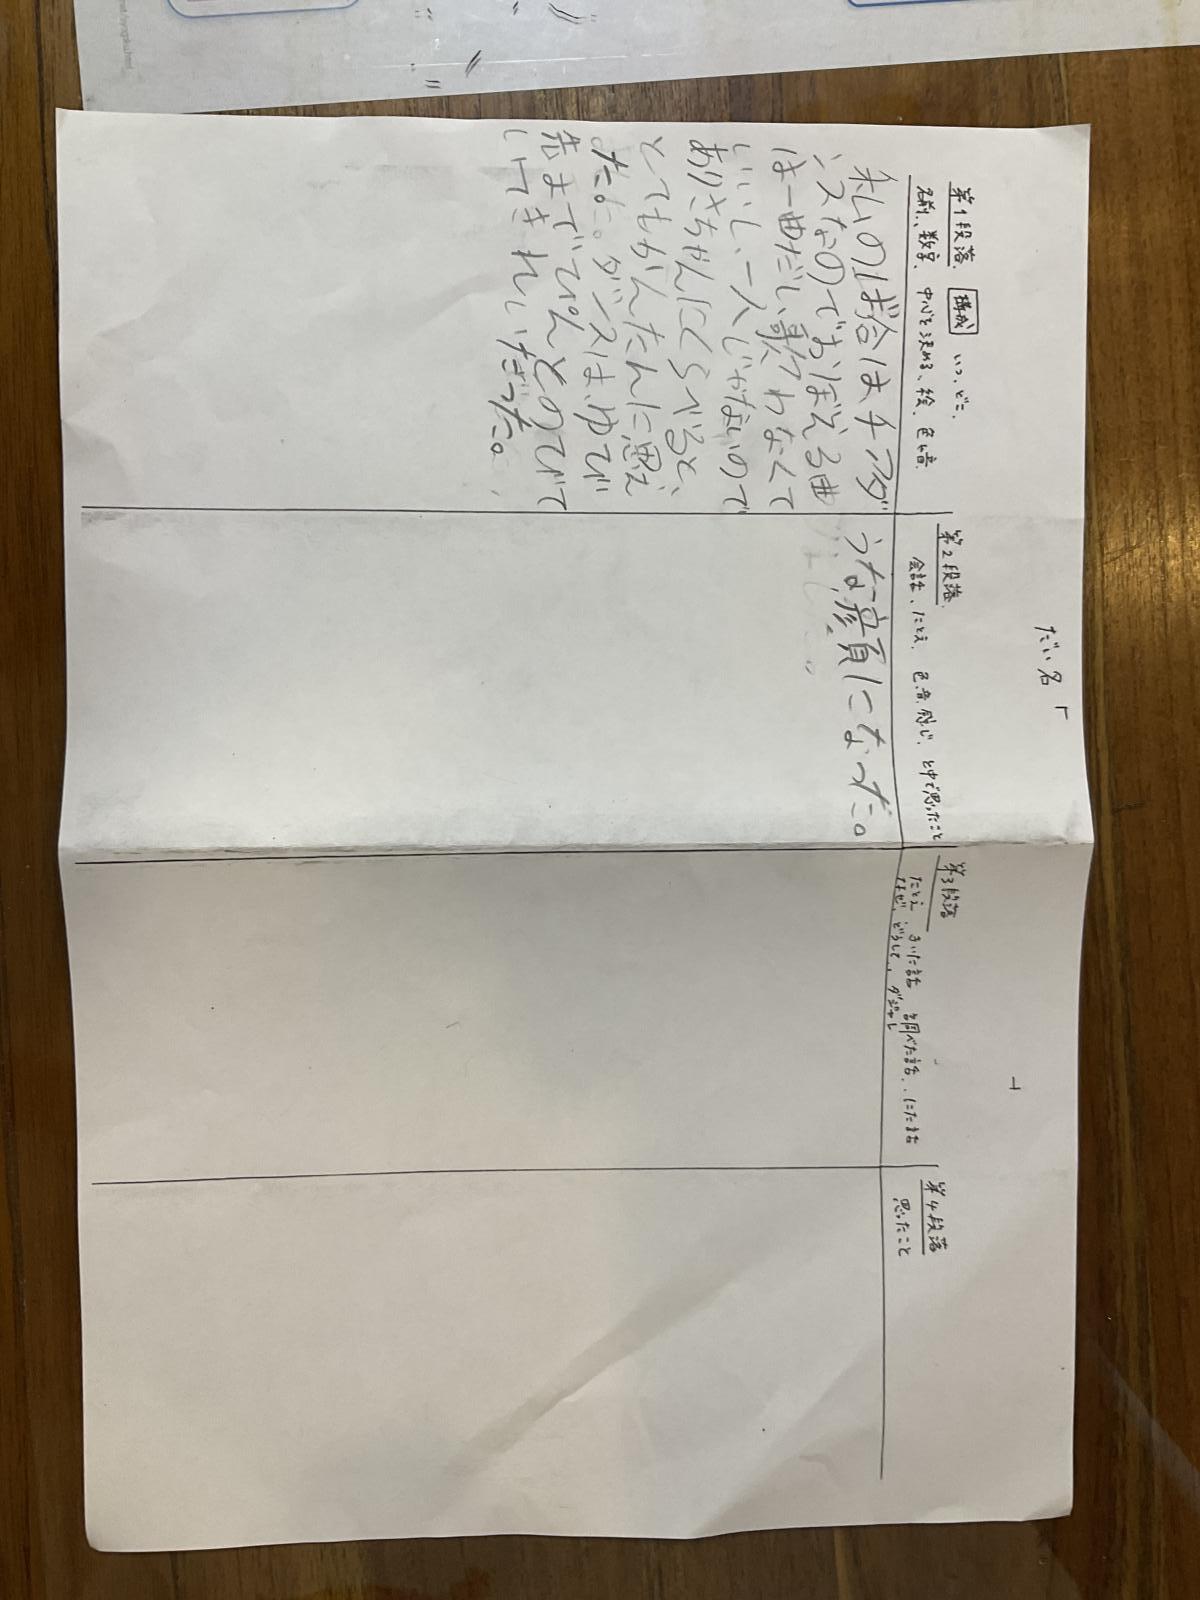 だい名「
」
第1段落 構成 いつ、どこ、
名前、数字、中心を決める、絵、色、音
私のば合はチアダ
ンスなのでおぼえる曲
は一曲だし、歌わなくて
いいし、一人じゃないので
ありさちゃんにくらべると、
とてもかんたんに思え
た。ダンスは、ゆび
先まででぴんとのびて
いてきれいだった。
第2段落
会話、たとえ、色、音、感じ、と中で思ったこと
うな顔になった。
第3段落
たとえ きいた話 調べた話、にた話
なぜ、どうして、ダジャレ
第4段落
思ったこと